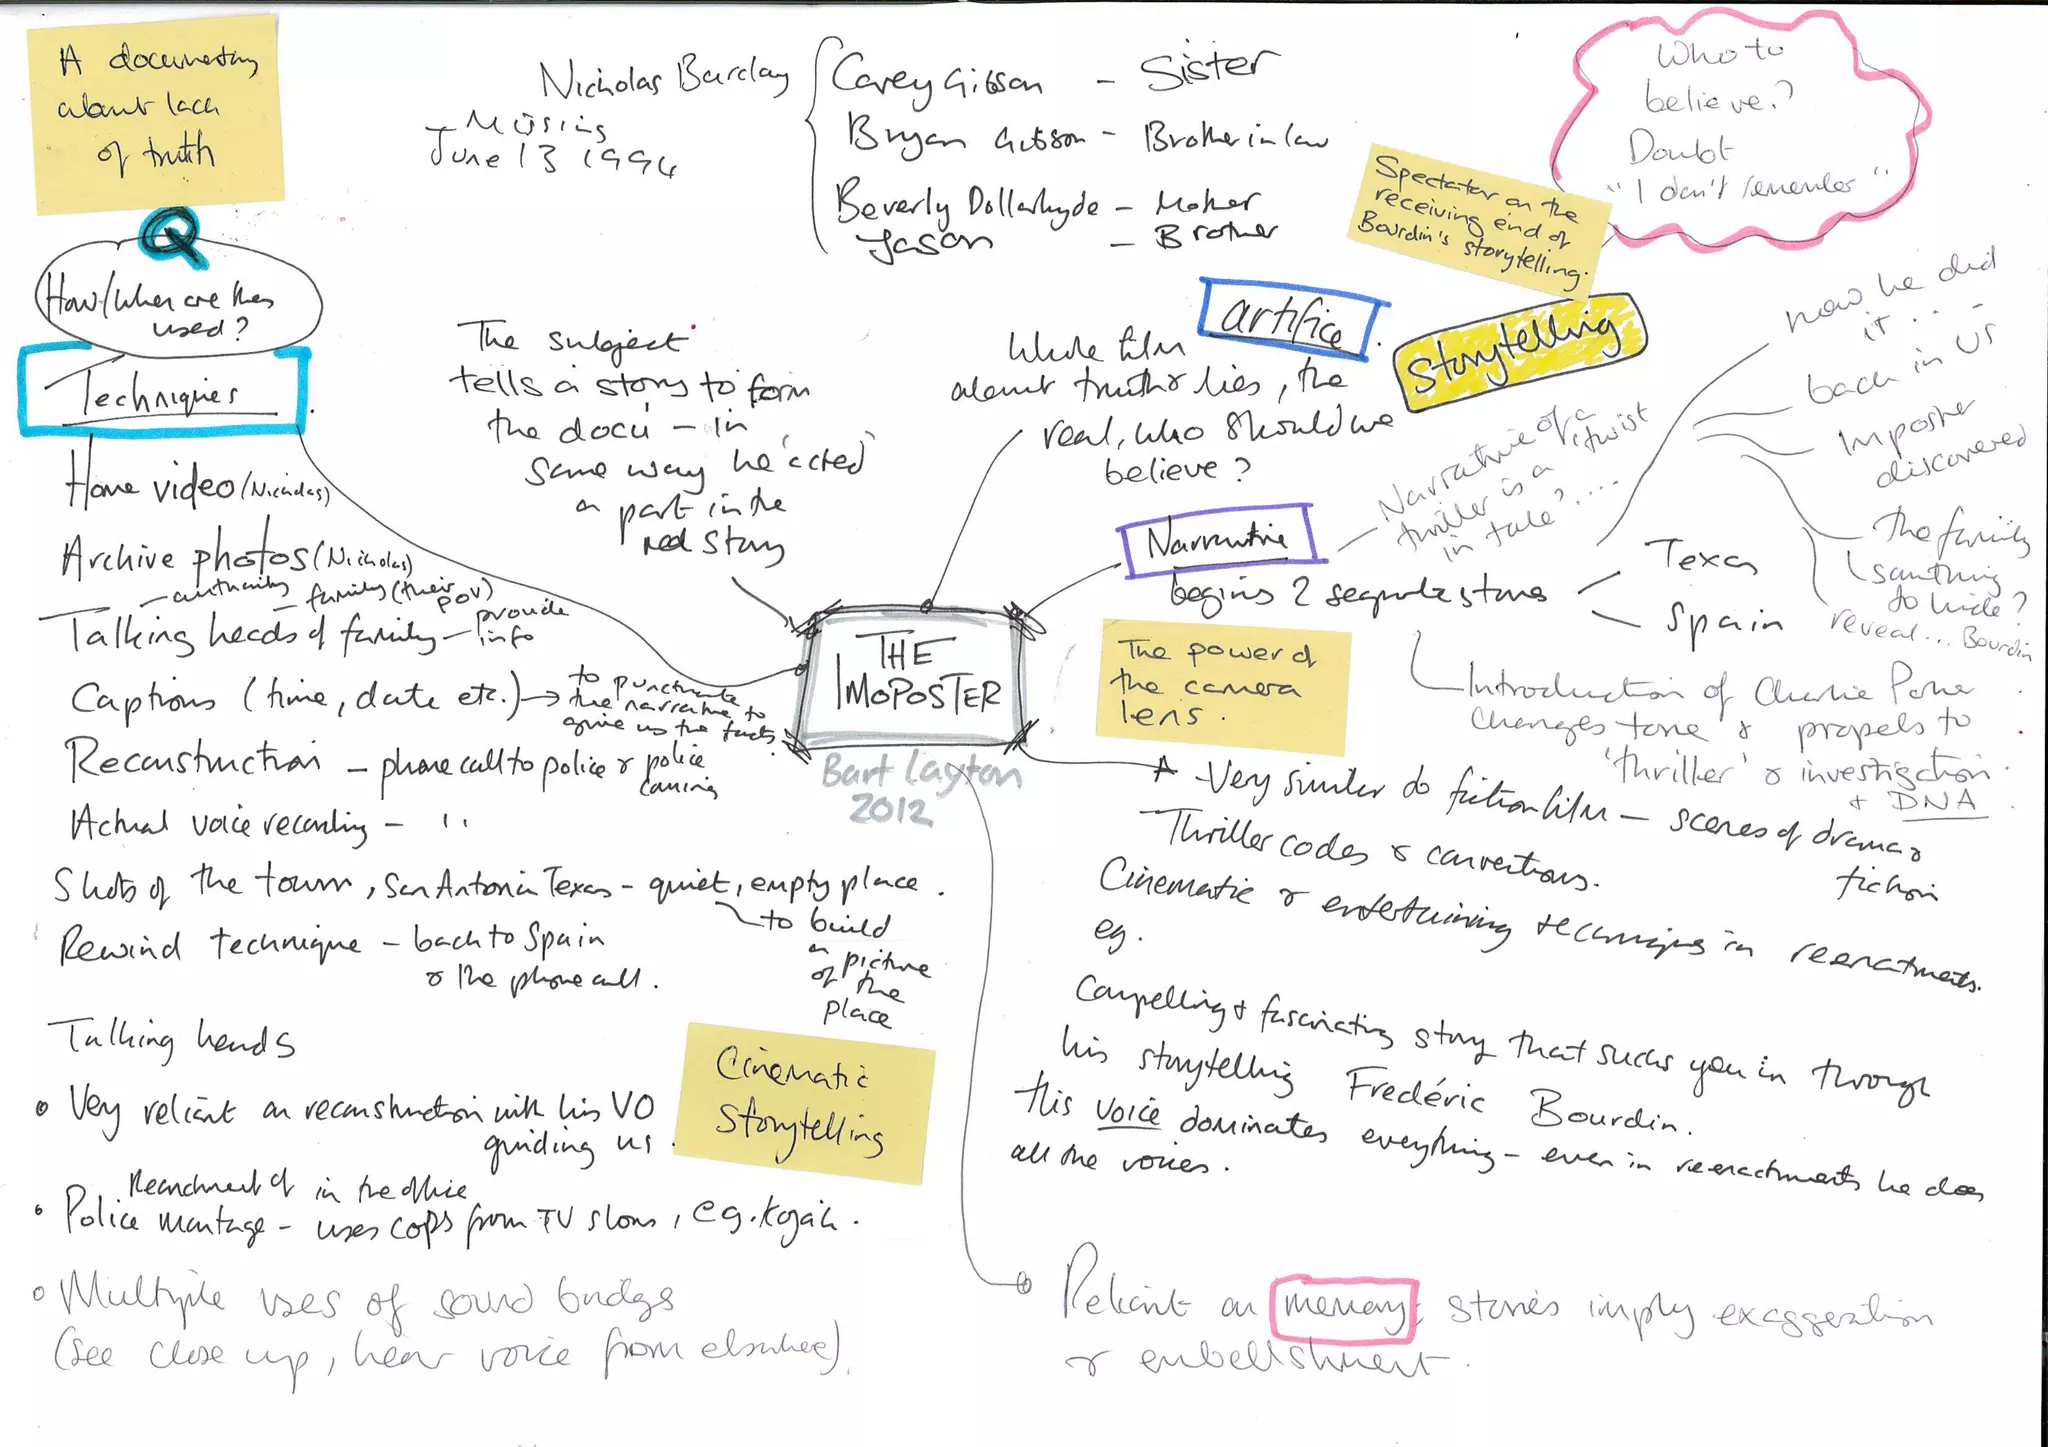 A documentary
about lack
of truth
Nicholas Barclay
Missing
June 13 1994
Carey Gibson - Sister
Bryan Gibson - Brother in law
Beverly Dollarhyde - Mother
Jason - Brother
Who to
believe?
Doubt
"I don't remember"
Spectator on the
receiving end of
Bourdin's storytelling.
Q
How/when are they
used?
Techniques
Home video (Nicholas)
Archive photos (Nicholas)
- authority - family (their
POV)
Talking heads of family - provide
info
Captions (time, date etc.) → to punctuate
the narrative to
give us the facts
Reconstruction - phone call to police & police
coming
Actual voice recording - ''
Shots of the town, San Antonia Texas - quiet, empty place.
to build
a picture
of the
place
Rewind technique - back to Spain
& the phone call.
Talking heads
• Very reliant on reconstruction with his VO
guiding us.
Reenactment of in the office
• Police montage - uses cops from TV shows, eg. Kojak.
• Multiple uses of sound bridges
(see close up, hear voice from elsewhere).
Cinematic
Storytelling
The subject
tells a story to form
the docu - in
same way he 'acted'
a part in the
real story
artifice
Storytelling
Whole film
about truth & lies, the
real, who should we
believe?
THE
IMOPOSTER
Bart Layton
2012
Narrative
begins 2 separate stories
Texas
Spain
Narrative of a
thriller is a 'twist
in tale'? ....
how he did
it . . .
back in US
Imposter
discovered
The family
something
to hide?
reveal... Bourdin
Introduction of Charlie Parker
changes tone & propels to
'thriller' & investigation
+ DNA
The power of
the camera
lens.
- Very similar to fiction film - scenes of drama &
fiction
Thriller codes & conventions.
Cinematic & entertaining techniques in reenactments.
eg.
Compelling & fascinating story that sucks you in through
his storytelling Fredéric Bourdin.
His voice dominates everything - even in reenactments he does
all the voices.
Reliant on memory; stories imply exaggeration
& embellishment.